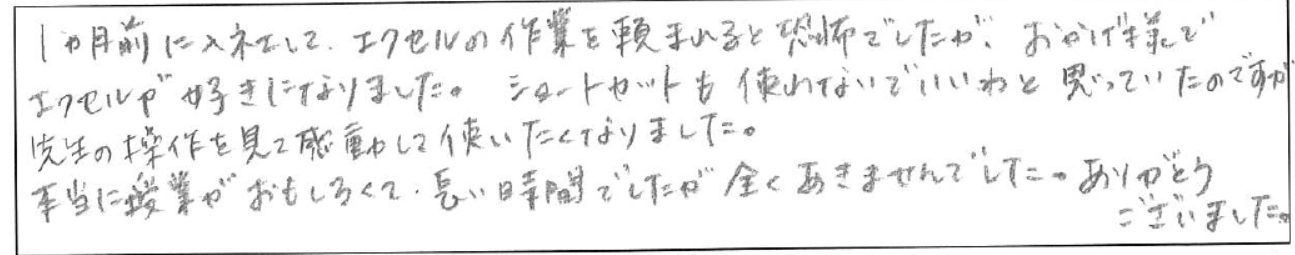 1ヵ月前に入社して、エクセルの作業を頼まれると恐怖でしたが、おかげ様で
エクセルが好きになりました。ショートカットも使わないでいいわと思っていたのですが
先生の操作を見て感動して使いたくなりました。
本当に授業がおもしろくて、長い時間でしたが全くあきませんでした。ありがとう
ございました。